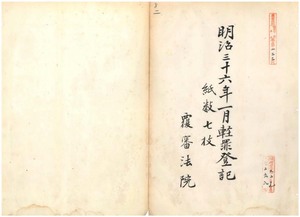 明治三十六年一月輕罪登記
紙数七枝
覆審法院